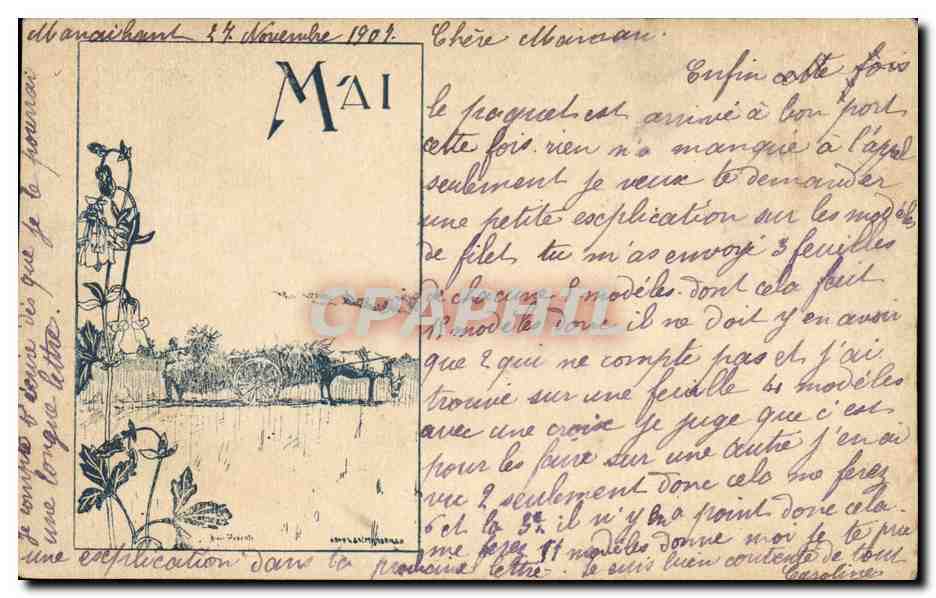 27 Novembre 1901. Chère
MAI
Enfin cette fois
le paquet est arrivé à bon port
cette fois. rien n'a manqué à l'appel
seulement je veux te demander
une petite esxplication sur les modèles
de filet, tu m'as envoyé 3 feuilles
chacune modèles dont cela fait
modèles donc il ne doit y en avoir
que 2 qui ne compte pas et j'ai
trouvé sur une feuille 4 modèles
avec une croix je juge que c'est
pour les faire sur une autre j'en ai
vu 2 seulement donc cela me ferez
6 et la 3e il n'y en a point donc cela
me ferez 11 modèles donne moi je te prie
une explication dans ta prochaine lettre. Je suis bien contente de tout
Caroline
je compte t'écrire dès que je le pourrai
une longue lettre.
CPAPHIL